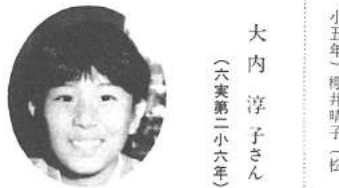 小五年）櫻井晴子（松
大内淳子さん
（六実第二小六年）